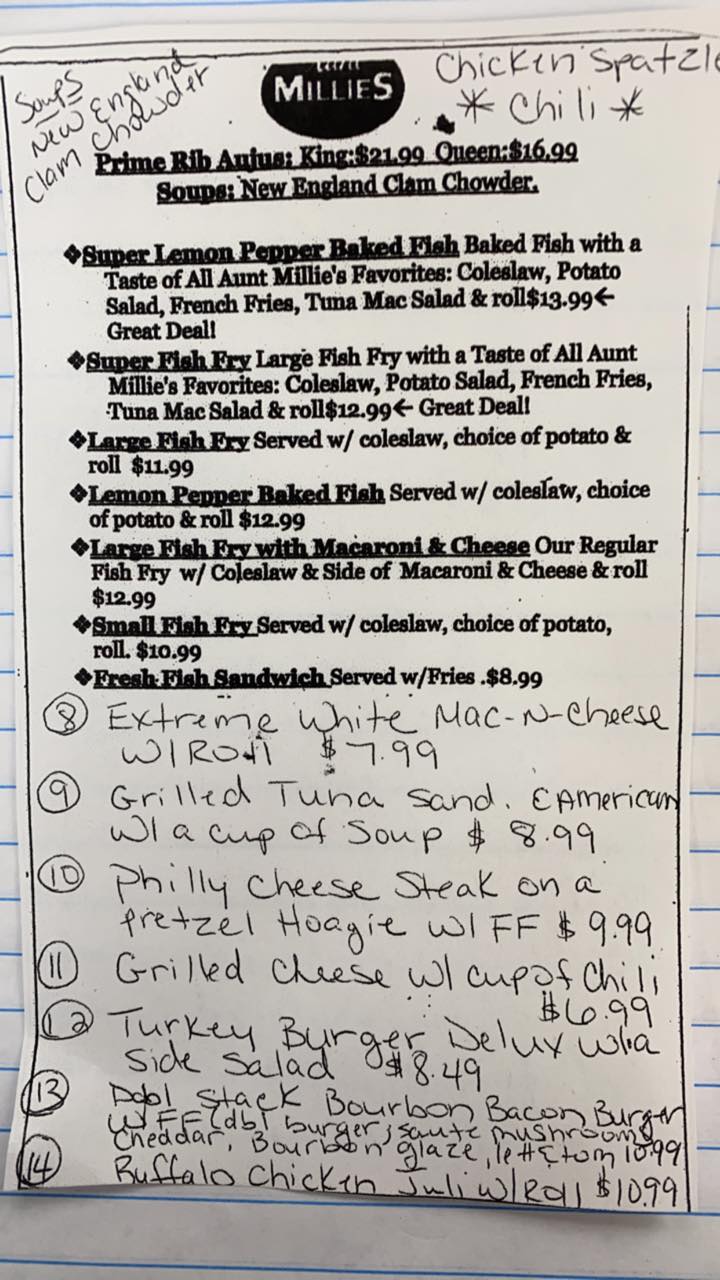 Soups
New England
Clam Chowder
MILLIES
Chicken Spatzle
* Chili *
Prime Rib Aujus: King:$21.99 Queen:$16.99
Soups: New England Clam Chowder.
❖Super Lemon Pepper Baked Fish Baked Fish with a
Taste of All Aunt Millie's Favorites: Coleslaw, Potato
Salad, French Fries, Tuna Mac Salad & roll$13.99←
Great Deal!
❖Super Fish Fry Large Fish Fry with a Taste of All Aunt
Millie's Favorites: Coleslaw, Potato Salad, French Fries,
Tuna Mac Salad & roll$12.99← Great Deal!
❖Large Fish Fry Served w/ coleslaw, choice of potato &
roll $11.99
❖Lemon Pepper Baked Fish Served w/ coleslaw, choice
of potato & roll $12.99
❖Large Fish Fry with Macaroni & Cheese Our Regular
Fish Fry w/ Coleslaw & Side of Macaroni & Cheese & roll
$12.99
❖Small Fish Fry Served w/ coleslaw, choice of potato,
roll. $10.99
❖Fresh Fish Sandwich Served w/Fries .$8.99
8 Extreme White Mac-N-Cheese
W/Roll $7.99
9 Grilled Tuna Sand. & American
W/ a cup of Soup $ 8.99
10 Philly Cheese Steak on a
Pretzel Hoagie W/ FF $ 9.99
11 Grilled Cheese w/ cup of Chili
$6.99
12 Turkey Burger Delux W/a
Side Salad $8.49
13 Dbbl Stack Bourbon Bacon Burger
W FF (dbl burger, saute mushrooms
Cheddar, Bourbon glaze, lett & tom 10.99
14 Buffalo Chicken Juli W/Roll $10.99